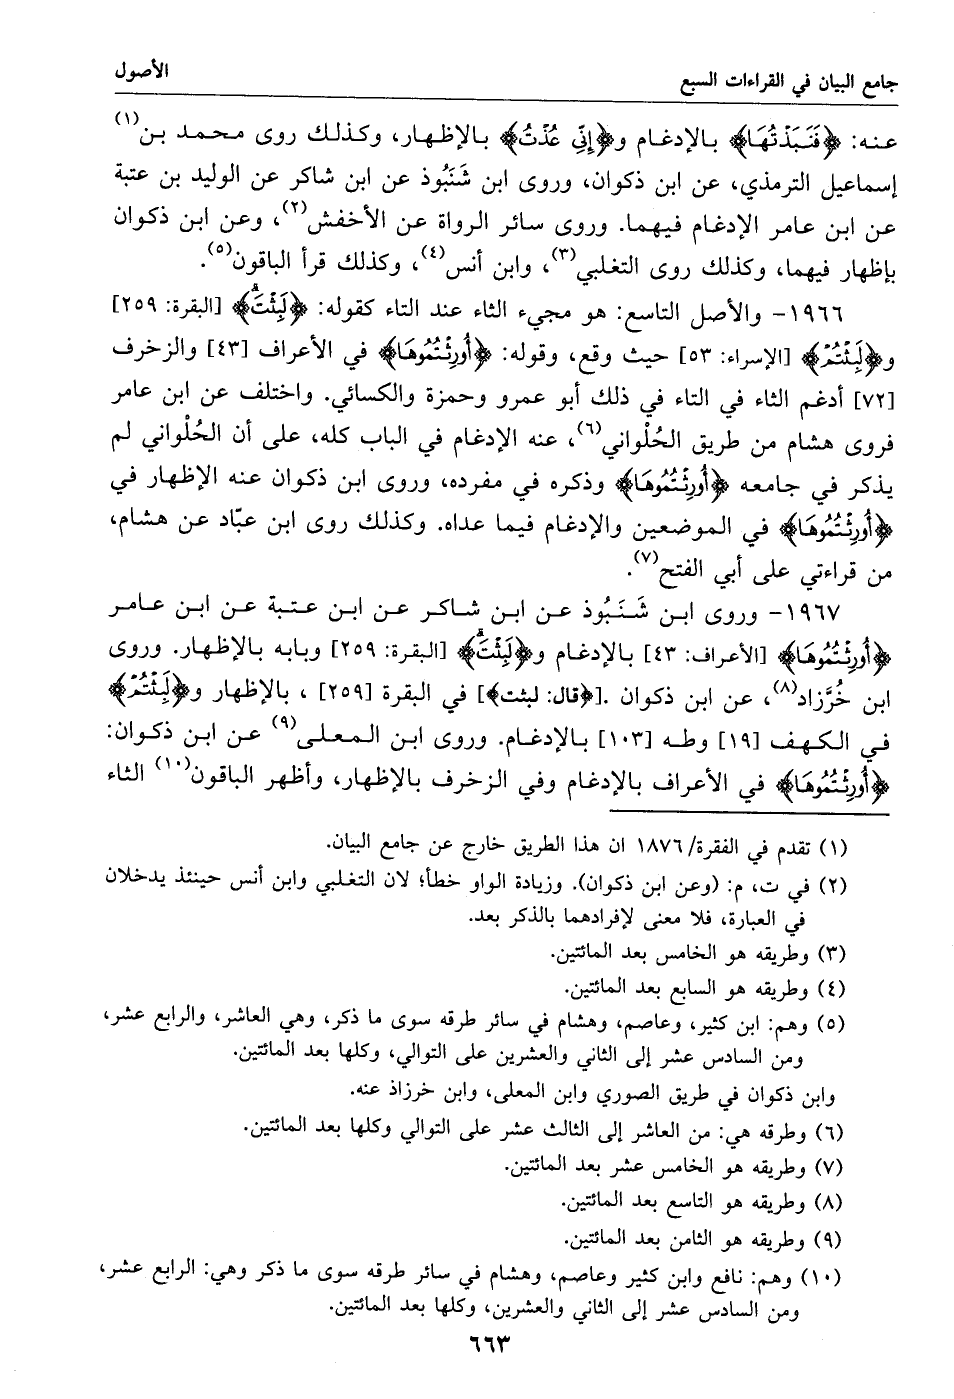 جامع البيان في القراءات السبع
الأصول
عنه: ﴿فَنَبَذْتُهَا﴾ بالإدغام و﴿إِنِّي عُذْتُ﴾ بالإظهار، وكذلك روى محمد بن(١)
إسماعيل الترمذي، عن ابن ذكوان، وروى ابن شَنَبُوذ عن ابن شاكر عن الوليد بن عتبة
عن ابن عامر الإدغام فيهما. وروى سائر الرواة عن الأخفش(٢)، وعن ابن ذكوان
بإظهار فيهما، وكذلك روى التغلبي(٣)، وابن أنس(٤)، وكذلك قرأ الباقون(٥).
١٩٦٦- والأصل التاسع: هو مجيء الثاء عند التاء كقوله: ﴿لَبِثْتَ﴾ [البقرة: ٢٥٩]
و﴿لَبِثْتُمْ﴾ [الإسراء: ٥٣] حيث وقع، وقوله: ﴿أُورِثْتُمُوهَا﴾ في الأعراف [٤٣] والزخرف
[٧٢] أدغم الثاء في التاء في ذلك أبو عمرو وحمزة والكسائي. واختلف عن ابن عامر
فروى هشام من طريق الحُلْواني(٦)، عنه الإدغام في الباب كله، على أن الحُلْواني لم
يذكر في جامعه ﴿أُورِثْتُمُوهَا﴾ وذكره في مفرده، وروى ابن ذكوان عنه الإظهار في
﴿أُورِثْتُمُوهَا﴾ في الموضعين والإدغام فيما عداه. وكذلك روى ابن عبّاد عن هشام،
من قراءتي على أبي الفتح(٧).
١٩٦٧- وروى ابن شَنَبُوذ عن ابن شاكر عن ابن عتبة عن ابن عامر
﴿أُورِثْتُمُوهَا﴾ [الأعراف: ٤٣] بالإدغام و﴿لَبِثْتَ﴾ [البقرة: ٢٥٩] وبابه بالإظهار. وروى
ابن خُرَّزاد(٨)، عن ابن ذكوان .[﴿قال: لبثت﴾] في البقرة [٢٥٩] ، بالإظهار و﴿لَبِثْتُمْ﴾
في الكهف [١٩] وطه [١٠٣] بالإدغام. وروى ابن المعلى(٩) عن ابن ذكوان:
﴿أُورِثْتُمُوهَا﴾ في الأعراف بالإدغام وفي الزخرف بالإظهار، وأظهر الباقون(١٠) الثاء
(١) تقدم في الفقرة/ ١٨٧٦ ان هذا الطريق خارج عن جامع البيان.
(٢) في ت، م: (وعن ابن ذكوان). وزيادة الواو خطأ؛ لان التغلبي وابن أنس حينئذ يدخلان
في العبارة، فلا معنى لإفرادهما بالذكر بعد.
(٣) وطريقه هو الخامس بعد المائتين.
(٤) وطريقه هو السابع بعد المائتين.
(٥) وهم: ابن كثير، وعاصم، وهشام في سائر طرقه سوى ما ذكر، وهي العاشر، والرابع عشر،
ومن السادس عشر إلى الثاني والعشرين على التوالي، وكلها بعد المائتين.
وابن ذكوان في طريق الصوري وابن المعلى، وابن خرزاذ عنه.
(٦) وطرقه هي: من العاشر إلى الثالث عشر على التوالي وكلها بعد المائتين.
(٧) وطريقه هو الخامس عشر بعد المائتين.
(٨) وطريقه هو التاسع بعد المائتين.
(٩) وطريقه هو الثامن بعد المائتين.
(١٠) وهم: نافع وابن كثير وعاصم، وهشام في سائر طرقه سوى ما ذكر وهي: الرابع عشر،
ومن السادس عشر إلى الثاني والعشرين، وكلها بعد المائتين.
٦٦٣